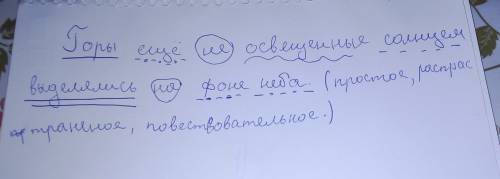 Горы ещё не освещенные солнцем
выделялись на фоне неба. (простое, распрас
транённое, повествовательное.)